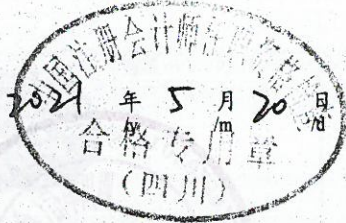 中国注册会计师任职资格检查
2021 年 5 月 20 日
/y /m /d
合格专用章
(四川)